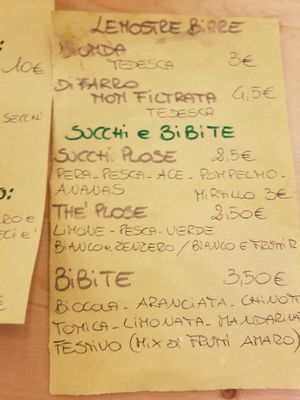 LE NOSTRE BIRRE
BIONDA
TEDESCA 3€
DI FARRO
NON FILTRATA 4,5€
TEDESCA
SUCCHI e BIBITE
SUCCHI PLOSE 2,5€
PERA - PESCA - ACE - POMPELMO -
ANANAS MIRTILLO 3€
THE' PLOSE 2,50€
LIMONE - PESCA - VERDE
BIANCO e ZENZERO / BIANCO E FRUTTI R
BIBITE 3,50€
BIOCOLA - ARANCIATA - CHINOTT
TONICA - LIMONATA - MANDARINA
FESTIVO (MIX DI FRUTTI AMARO)
10€